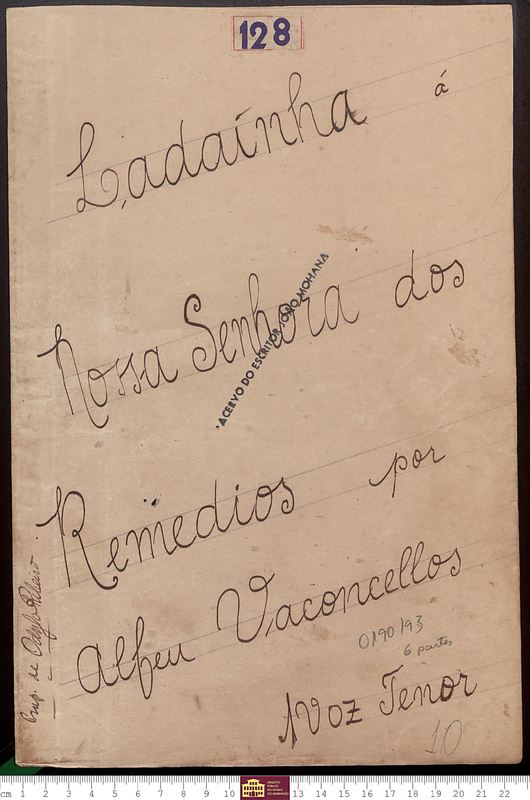 128
Ladaínha á
Nossa Senhora dos
ACERVO DO ESCRITOR JOÃO MOHANA
Remedios por
Alfeu Vaconcellos
0190/93
6 partes
1 Voz Tenor
10
cm 1 2 3 4 5 6 7 8 9 10 11 12 13 14 15 16 17 18 19 20 21 22